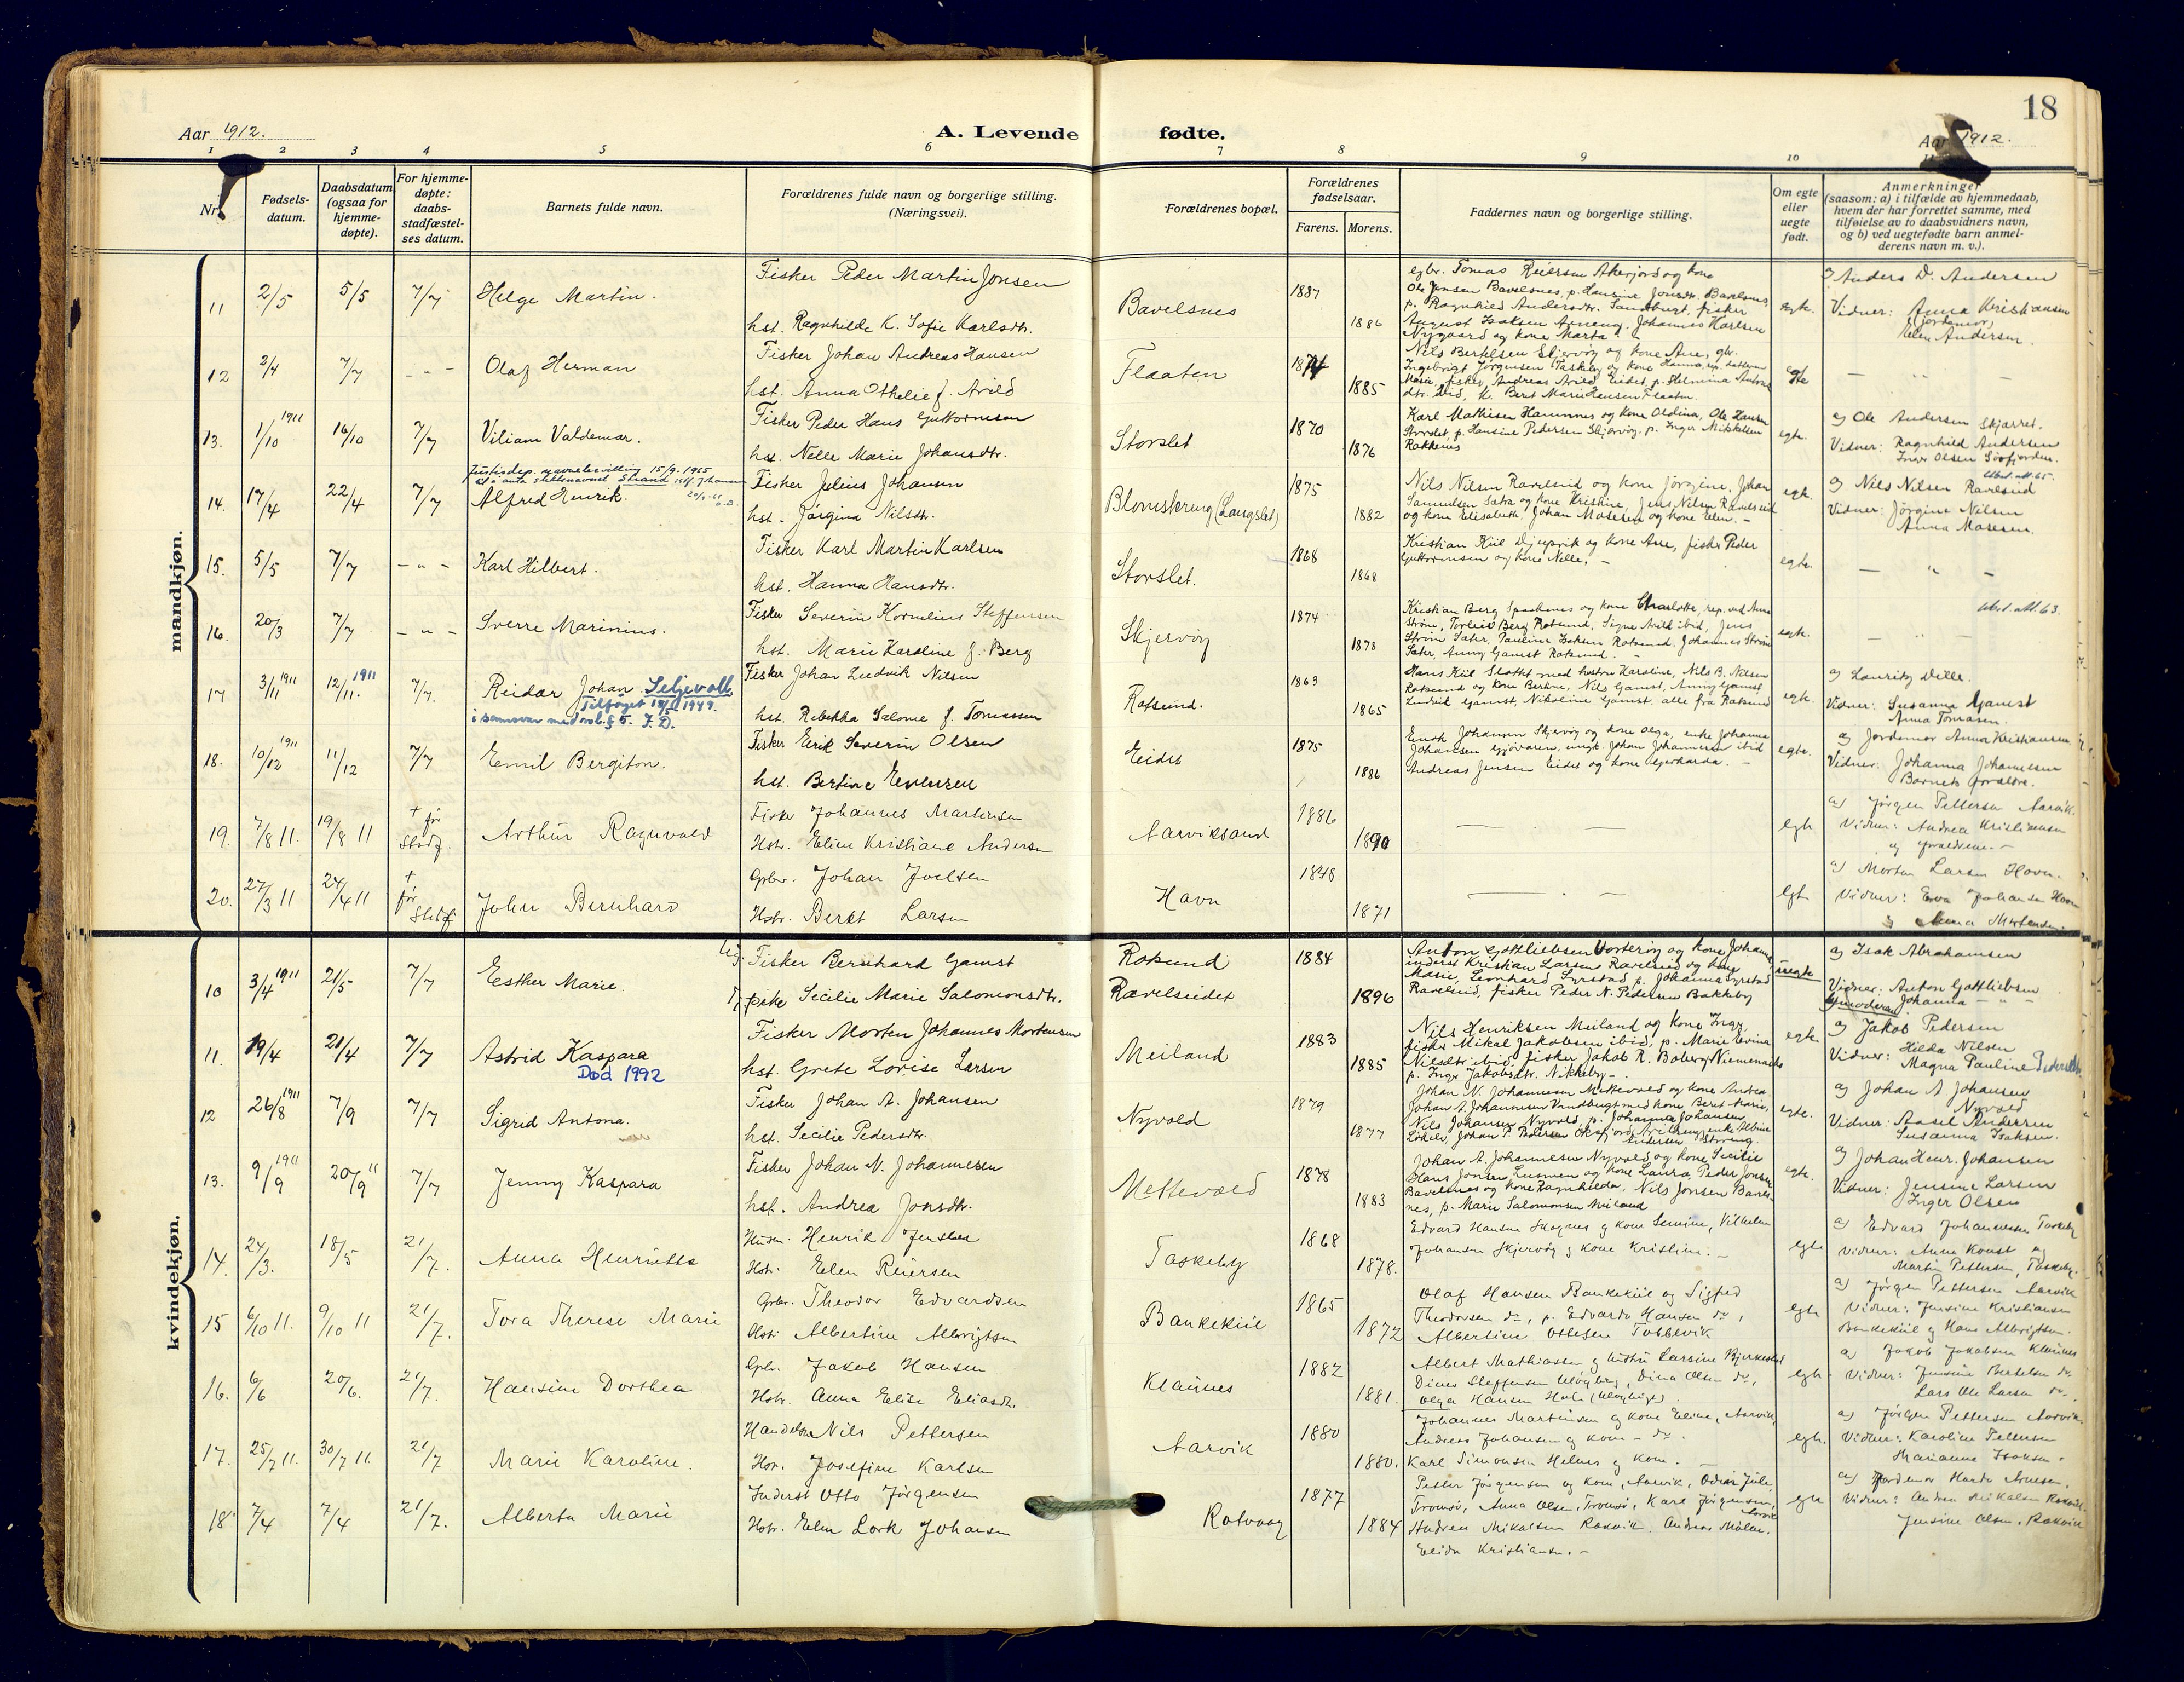 18
Aar 1912.
A. Levende fødte.
Aar 1912.
1 2 3 4 5 6 7 8 9 10
Nr.
Fødsels-
datum.
Daabsdatum
(ogsaa for
hjemme-
døpte).
For hjemme-
døpte:
daabs-
stadfæstel-
ses datum.
Barnets fulde navn.
Forældrenes fulde navn og borgerlige stilling.
(Næringsvei).
Forældrenes bopæl.
Forældrenes
fødselsaar.
Farens. Morens.
Faddernes navn og borgerlige stilling.
Om egte
eller
uegte
født.
Anmerkninger
(saasom: a) i tilfælde av hjemmedaab,
hvem der har forrettet samme, med
tilføielse av to daabsvidners navn,
og b) ved uegtefødte barn anmel-
derens navn m. v.).
mandkjøn.
11 2/5 5/5 7/7 Helge Martin.
Fisker Peder Martin Jonsen
hst. Ragnhilde K. Sofie Karlsdtr.
Bavelsnes 1887 1886
egbr. Tomas Reiersen Akerjord og kone
Ole Jensen Bavelsnes, p. Hansine Jonsdtr. Bavelsnes,
p. Ragnhild Andersdtr. Sandbugt, fisker
August Isaksen Arneng, Johannes Karlsen
Nygaard og kone Marta.
egte.
a) Anders D. Andersen
Vidner: Anna Kristiansen
(jordemor)
Elen Andersen.
12 2/4 7/7 - " - Olaf Herman
Fisker Johan Andreas Hansen
hst. Anna Othelie f. Arild
Flaaten 1874 1885
Nils Bertelsen Skjervøy og kone Ane, gbr.
Ingebrigt Jørgensen Taskeby og kone Hanna, rep. datteren
Marie, fisker Andreas Arild Eidet, p. Helmina Andreas
dtr. ibid, h. Beret Marie Hansen Flaaten.
egte
- " -
13. 1/10 1911 16/10 7/7 Viliam Valdemar.
Fisker Peder Hans Guttormsen
hst. Nelle Marie Johansdtr.
Storslet 1870 1876
Karl Mathisen Hamnnes og kone Oldina, Ole Hansen
Storslet, p. Hansine Pedersen Skjervøy, p. Inger Mikkelsen
Rakkenes
egte.
a) Ole Andersen Skjærret.
Vidner: Ragnhild Andersen
Inger Olsen Sørfjorden.
Justisdep. navnebevilling 15/9-1965
til å anta slektsnavnet Strand
14. 17/4 22/4 7/7 Alfred Henrik.
Fisker Julius Johansen
hst. Jörgine Nilsdtr.
Blomstereng (Langslet) 1875 1882
Nils Nilsen Ravelseid og kone Jörgine, Johan
Samuelsen Sætra og kone Kristine, Jens Nilsen Ravelseid
og kone Elisabeth, Johan Mosesen og kone Elen. -
egte.
Utst. att. 65.
a) Nils Nilsen Ravelseid
Vidner: Jörgine Nilsen
Anna Mosesen.
15. 5/5 7/7 - " - Karl Hilbert.
Fisker Karl Martin Karlsen
hst. Hanna Hansdtr.
Storslet. 1868 1868
Kristian Kiil Djupvik og kone Ane, fisker Peder
Guttormsen og kone Nelle. -
egte.
- " -
16. 20/3 7/7 - " - Sverre Marinius.
Fisker Severin Kornelius Steffensen
hst. Marie Karoline f. Berg
Skjervøy 1874 1878
Kristian Berg Spaakenes og kone Charlotte, rep. ved Anna
Strøm, Torleif Berg Rotsund, Signe Arild ibid, Jens
Strøm Sæter, Pauline Isaksen Rotsund, Johannes Strøm
Sæter, Anny Gamst Rotsund. -
egte.
Utst. att. 63.
- " -
17 3/11 1911 12/11. 1911 7/7. Reidar Johan. Seljevoll
Tilføyet 1949.
i samsvar med nvl. § 5. J. D.
Fisker Johan Ludvik Nilsen
hst. Rebekka Salome f. Tomassen
Rotsund. 1863 1865
Hans Kiil Slottet med hustru Karoline, Nils B. Nilsen
Rotsund og kone Bertine, Nils Gamst, Anny Gamst
Ludvid Gamst, Nikoline Gamst, alle fra Rotsund
egte.
a) Lauritz Dille.
Vidner: Susanna Gamst
Anna Tomasen.
18. 10/12 1911 11/12 7/7 Emil Bergiton.
Fisker Eerik Severin Olsen
hst. Bertine Evensen
Eidet 1875 1886
Enok Johansen Skjervøy og kone Olga, enke Johanna
Johansen Gjøvaren, ungk. Johan Johannesen ibid
Andreas Jensen Eidet og kone Gjerharda. -
egte.
a) Jordemor Anna Kristiansen
Vidner: Johanna Johannesen
Barnets forældre.
19. 7/8 11. 19/8 11 † før Stadf. Arthur Ragnvald
Fisker Johannes Martinsen
Hstr. Eline Kristiane Andersen
Aarviksand 1886 1890
- - egte
a) Jørgen Pettersen Aarvik.
Vidner: Andrea Kristiansen
og forældrene. -
20. 27/3 11 24/4 11 † før Stadf. John Bernhard
Gbr. Johan Joelsen
Hstr. Beret Larsen
Havn 1848 1871
- - egte
a) Morten Larsen Havn.
Vidner: Ewa Johansen Havn
Anna Mortensen.
kvindekjøn.
10 3/4 1911 21/5 7/7 Esther Marie.
Fisker Bernhard Gamst
pike Secilie Marie Salomonsdtr.
Rotsund
Ravelseidet 1884 1896
Anton Gottliebsen Vorterøy og kone Johanne
inderst Kristian Larsen Ravelseid og kone
Marie, Leonhard Syrstad, p. Johanna Syrstad
Ravelseid, fisker Peder N. Pedersen Bakkeby
uegte
a) Isak Abrahamsen
Vidner: Anton Gottliebsen
Johanna - " -
b) moderen
11. 19/4 21/4 7/7 Astrid Kaspara
Død 1992
Fisker Morten Johannes Mortensen
hst. Grete Lovise Larsen
Meiland 1883 1885
Nils Henriksen Meiland og kone Inger,
fisker Mikal Jakobsen ibid, p. Marie Evina
Nilsdtr. ibid, fisker Jakob R. Boberg Niemenaiko
p. Inger Jakobsdtr. Nikkeby -
egte.
a) Jakob Pedersen
Vidner: Hilda Nilsen
Magna Pauline Pedersdtr.
12 26/8 1911 7/9 7/7 Sigrid Antona.
Fisker Johan A. Johansen
hst. Secilie Pedersdtr.
Nyvold 1879 1877
Johan N. Johannesen Mettevold og kone Andrea
Johan A. Johannesen Vandbugt med kone Beret Marie,
Nils Johansen Nyvold, p. Johanna Johansen
egte.
a) Johan A Johansen
Nyvold
Vidner: Aasel Andersen
Susanna Isaksen.
13. 9/9 1911 20/9 11 7/7 Jenny Kaspara
Fisker Johan N. Johannesen
hst. Andrea Jonsdtr.
Mettevold 1878 1883
Johan A. Johannesen Nyvold og kone Secilie
Hans Jonsen Lusmen og kone Laura, Peder Jonsen
Bavelsnes og kone Ragnhilda, Nils Jonsen Bavels-
nes, p. Marie Salomonsen Meiland
egte.
a) Johan Henr. Johansen
Vidner: Jensine Larsen
Inger Olsen
14. 24/3. 18/5 21/7. Anna Henriette
Husm. Henrik Jensen
Hstr. Elen Reiersen
Taskeby 1868 1878.
Edvard Hansen Skognes og kone Semine, Vilhelm
Johansen Skjervøy og kone Kristine. -
egte
a) Edvard Johannesen Taskeby
Vidner: Anna Konst og
Martin Pettersen, Taskeby.
15 6/10 11. 9/10 11 21/7. Tora Therese Marie
Gbr. Theodor Edvardsen
Hstr. Albertine Albrigtsen
Baukekiil 1865 1872
Olaf Hansen Baukekiil og Sigfred
Theodorsen do, p. Edvarda Hansen do,
Albertine Ottesen Tobbevik
egte
a) Jørgen Pettersen Aarvik
Vidner: Jensine Kristiansen
Baukekiil og Hans Albrigtsen.
16. 6/6 20/6. 21/7. Hansine Dorthea
Gbr. Jakob Hansen
Hstr. Anna Elise Eliasdtr.
Klaunes 1882 1881.
Albert Mathiassen og hustru Larsine Bjerkestad
Olga Hansen
egte
a) Jakob Jakobsen Klaunes
Vidner: Jensine Bertelsen do
Lars Ole Larsen do
17. 25/7 11. 30/7 11. 21/7 Marie Karoline.
Handelsm Nils Pettersen
Hstr. Josefine Karlsen
Aarvik 1880 1880.
Johannes Martinsen og kone Eline, Aarvik,
Andreas Johansen og kone - do.
Karl Simonsen Helnes og kone. -
egte.
a) Jørgen Pettersen Aarvik.
Vidner: Karoline Pettersen
Marianne Isaksen.
18 7/4 7/4 21/7. Alberta Marie
Inderst Otto Jørgensen
Hstr. Elen Lork Johansen
Rotvaag 1877 1884
Petter Jørgensen og kone, Aarvik,
Tromsø, Anna Olsen, Tromsø, Karl Jørgensen, Aarvik
Andrea Mikalsen Rakvik. Andreas
Elida Kristiansen. -
egte
a) Jordemor
Vidner: Andrea Mikalsen Rakvik.
Jensine Olsen. Rakvik